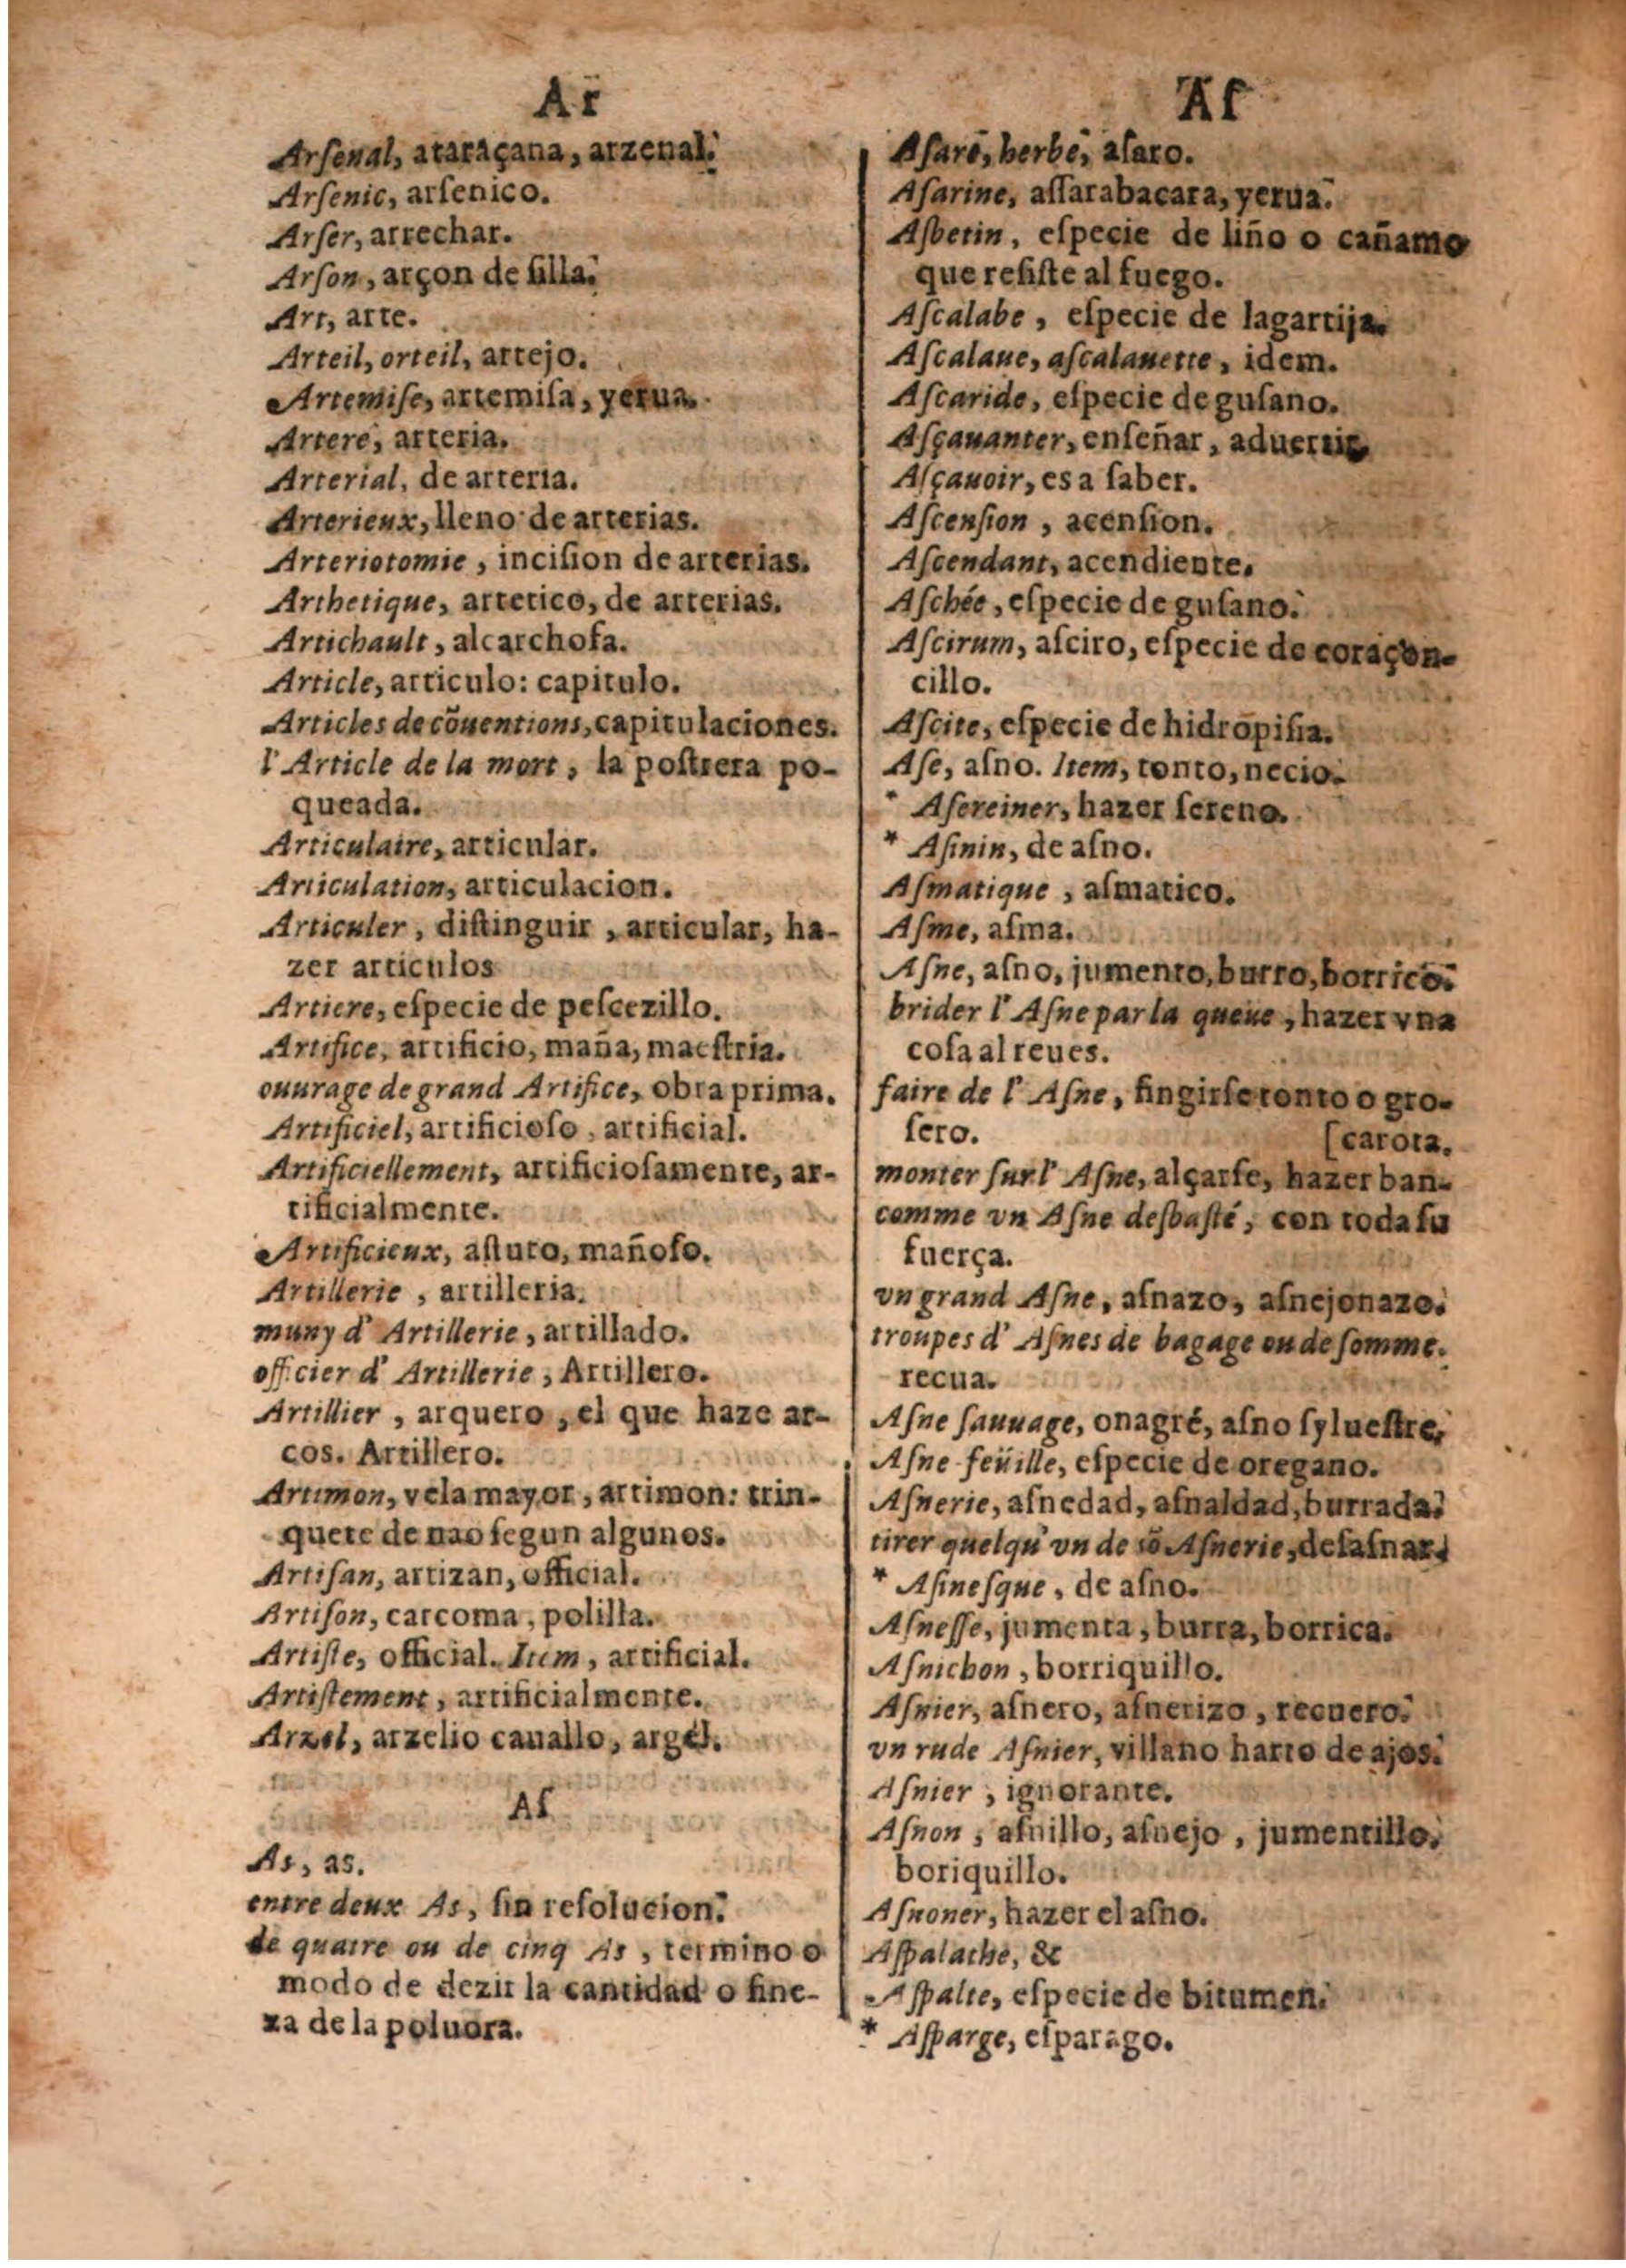 Ar
Arſenal, ataraçana, arzenal.
Arſenic, arſenico.
Arſer, arrechar.
Arſon, arçon de ſilla.
Art, arte.
Arteil, orteil, artejo.
Artemiſe, artemiſa, yerua.
Artere, arteria.
Arterial, de arteria.
Arterieux, lleno de arterias.
Arteriotomie, inciſion de arterias.
Arthetique, artetico, de arterias.
Artichault, alcarchofa.
Article, articulo: capitulo.
Articles de cõuentions, capitulaciones.
l'Article de la mort, la poſtrera po-
queada.
Articulaire, articular.
Articulation, articulacion.
Articuler, diſtinguir, articular, ha-
zer articulos
Artiere, eſpecie de peſcezillo.
Artifice, artificio, maña, maeſtria.
ouurage de grand Artifice, obra prima.
Artificiel, artificioſo, artificial.
Artificiellement, artificioſamente, ar-
tificialmente.
Artificieux, aſtuto, mañoſo.
Artillerie, artilleria.
muny d'Artillerie, artillado.
officier d'Artillerie, Artillero.
Artillier, arquero, el que haze ar-
cos. Artillero.
Artimon, vela mayor, artimon: trin-
quete de nao ſegun algunos.
Artiſan, artizan, official.
Artiſon, carcoma, polilla.
Artiſte, official. Item, artificial.
Artiſtement, artificialmente.
Arzel, arzelio cauallo, argel.
Aſ
As, as.
entre deux As, ſin reſolucion.
de quatre ou de cinq As, termino o
modo de dezir la cantidad o fine-
za de la poluora.
Aſ
Aſarẽ, herbe, aſaro.
Aſarine, aſſarabacara, yerua.
Aſbetin, eſpecie de liño o cañamo
que reſiſte al fuego.
Aſcalabe, eſpecie de lagartija.
Aſcalaue, aſcalauette, idem.
Aſcaride, eſpecie de guſano.
Aſçauanter, enſeñar, aduertir.
Aſçauoir, es a ſaber.
Aſcenſion, acenſion.
Aſcendant, acendiente.
Aſchée, eſpecie de guſano.
Aſcirum, aſciro, eſpecie de coraçon-
cillo.
Aſcite, eſpecie de hidropiſia.
Aſe, aſno. Item, tonto, necio.
* Aſereiner, hazer ſereno.
* Aſinin, de aſno.
Aſmatique, aſmatico.
Aſme, aſma.
Aſne, aſno, jumento, burro, borrico.
brider l'Aſne par la queue, hazer vna
coſa al reues.
faire de l'Aſne, fingirſe tonto o gro-
ſero. [carota.
monter ſur l'Aſne, alçarſe, hazer ban-
comme vn Aſne deſbaſté, con toda ſu
fuerça.
vn grand Aſne, aſnazo, aſnejonazo.
troupes d'Aſnes de bagage ou de ſomme.
recua.
Aſne ſauuage, onagré, aſno ſylueſtre.
Aſne feüille, eſpecie de oregano.
Aſnerie, aſnedad, aſnaldad, burrada.
tirer quelqu'vn de sõ Aſnerie, deſaſnar.
* Aſineſque, de aſno.
Aſneſſe, jumenta, burra, borrica.
Aſnichon, borriquillo.
Aſnier, aſnero, aſnerizo, recuero.
vn rude Aſnier, villano harto de ajos.
Aſnier, ignorante.
Aſnon, aſnillo, aſnejo, jumentillo,
boriquillo.
Aſnoner, hazer el aſno.
Aſpalathe, &
Aſpalte, eſpecie de bitumen.
* Aſparge, eſparago.